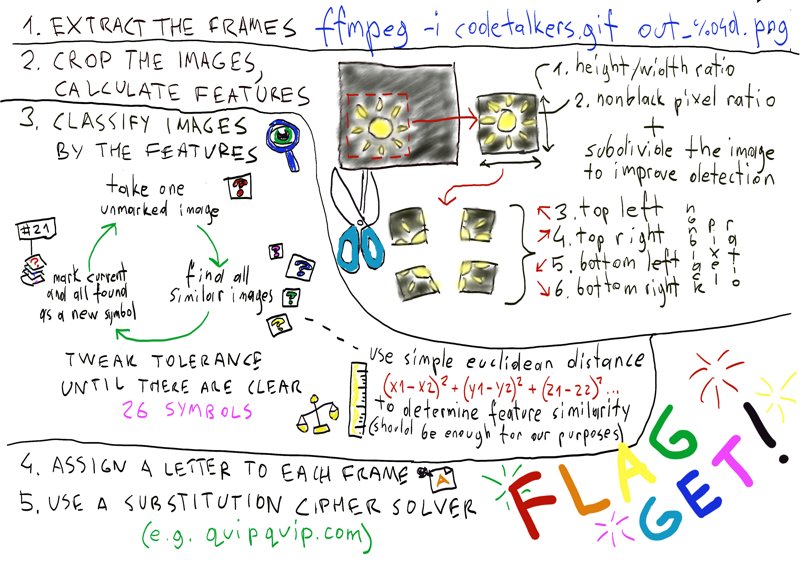 1. EXTRACT THE FRAMES ffmpeg -i codetalkers.gif out_%04d.png
2. CROP THE IMAGES,
CALCULATE FEATURES
1. height/width ratio
2. nonblack pixel ratio
+
subdivide the image
to improve detection
3. top left
4. top right
5. bottom left
6. bottom right
nonblack
pixel
ratio
3. CLASSIFY IMAGES
BY THE FEATURES
take one
unmarked image
?
find all
similar images
?
?
?
?
#21
?
mark current
and all found
as a new symbol
TWEAK TOLERANCE
UNTIL THERE ARE CLEAR
26 SYMBOLS
use simple euclidean distance
(x1-x2)²+(y1-y2)²+(z1-z2)²...
to determine feature similarity
(should be enough for our purposes)
4. ASSIGN A LETTER TO EACH FRAME
A
5. USE A SUBSTITUTION CIPHER SOLVER
(e.g. quipquip.com)
FLAG
GET!